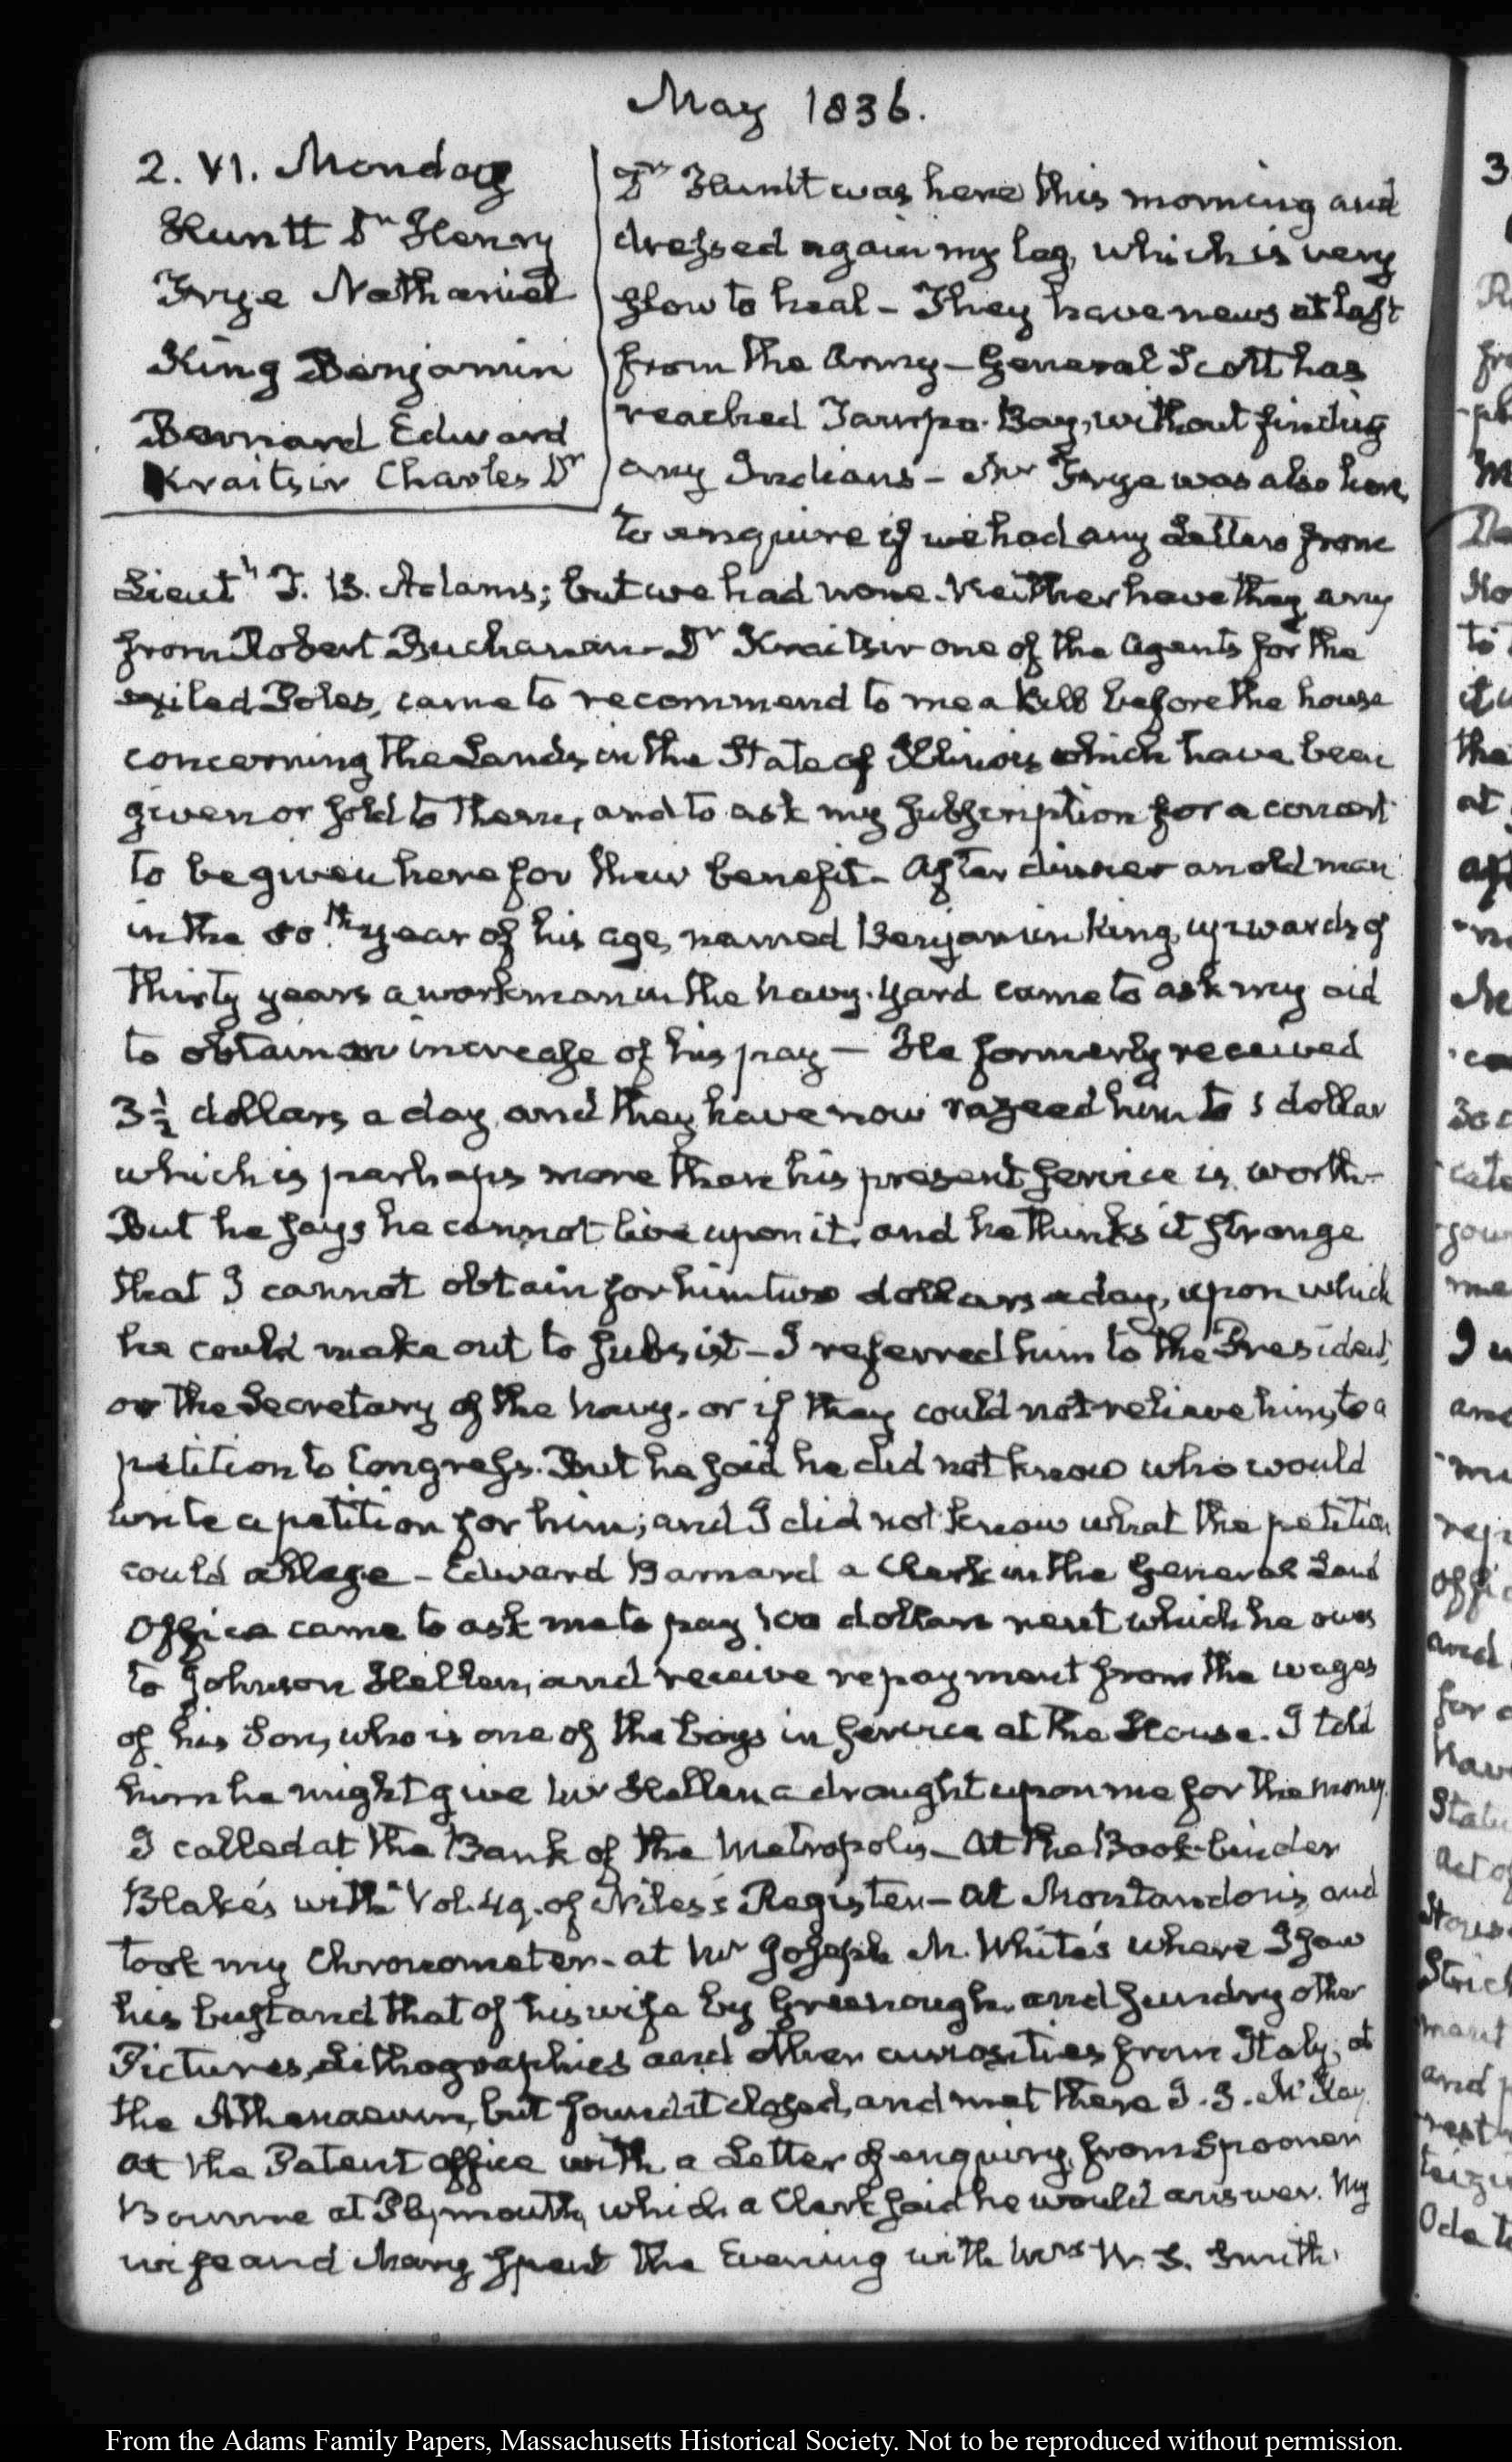 May 1836.
2. VI. Monday
Huntt Dr Henry
Frye Nathaniel
King Benjamin
Barnard Edward
Kraitsir Charles Dr
Dr Huntt was here this morning and
dressed again my leg, which is very
slow to heal – They have news at last
from the Army – General Scott has
reached Tampa-Bay, without finding
any Indians – Mr Frye was also here,
to enquire if we had any Letters from
Lieutt T. B. Adams; but we had none. Neither have they any
from Robert Buchanan – Dr Kraitsir one of the Agents for the
exiled Poles, came to recommend to me a Bill before the house
concerning the Lands, in the State of Illinois which have been
given or sold to them, and to ask my subscription for a concert
to be given here for their benefit – After dinner an old man
in the 80th year of his age, named Benjamin King, upwards of
thirty years a workman in the Navy-Yard came to ask my aid
to obtain an increase of his pay – He formerly received
3½ dollars a day, and they have now razeed him to 1 dollar
which is perhaps more than his present service is worth –
But he says he cannot live upon it; and he thinks it strange
that I cannot obtain for him two dollars a day, upon which
he could make out to subsist – I referred him to the President,
or the Secretary of the Navy, or if they could not relieve him, to a
petition to Congress. But he said he did not know who would
write a petition for him; and I did not know what the petition
could allege – Edward Barnard a Clerk in the General Land
Office came to ask me to pay 100 dollars rent which he owes
to Johnson Hellen, and receive repayment from the wages
of his Son, who is one of the boys in service at the House. I told
him he might give Mr Hellen a draught upon me for the money.
I called at the Bank of the Metropolis – At the Book-binder
Blake's with Vol. 49. of Niles's Register – at Montandon's, and
took my Chronometer – at Mr Joseph M. White's where I saw
his bust and that of his wife by Greenough, and sundry other
Pictures, Lithographies and other curiosities from Italy; at
the Athenaeum, but found it closed, and met there I. I. McKay.
At the Patent office with a Letter of enquiry from Spooner
Bourne at Plymouth, which a Clerk said he would answer. My
wife and Mary spent the Evening with Mrs W. S. Smith.
From the Adams Family Papers, Massachusetts Historical Society. Not to be reproduced without permission.